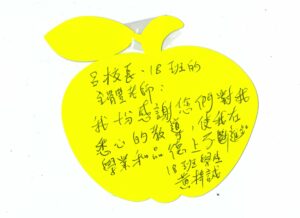 呂校長、18班的
全體老師：
我均感謝您們對我
悉心的教導，使我在
學業和品德上了斷進步
18班學生
黃梓誠